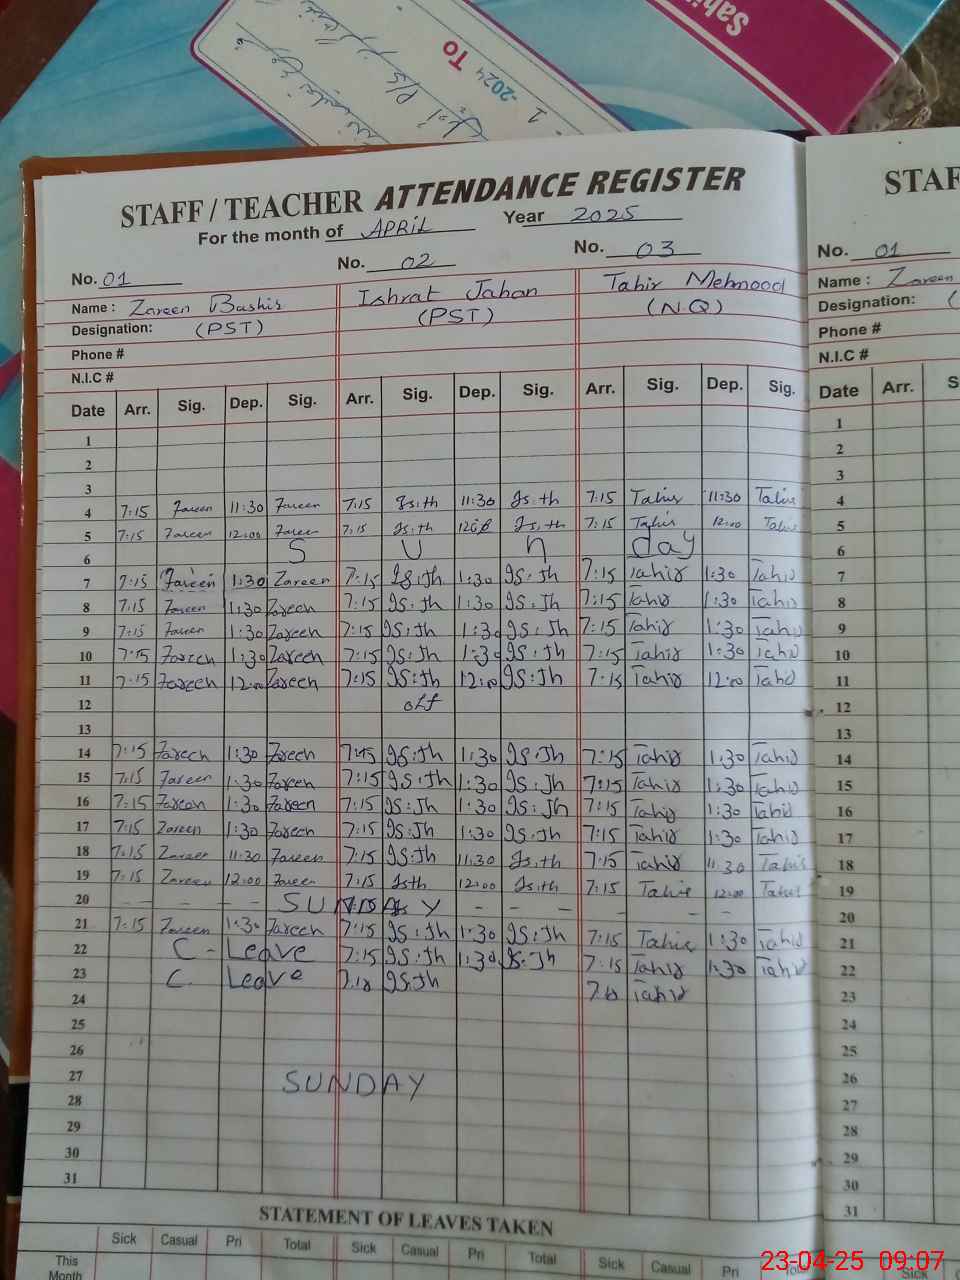 Sahi
-2024 To
1
STAFF / TEACHER ATTENDANCE REGISTER
For the month of APRIL Year 2025
No. 01 No. 02 No. 03
Name : Zareen Bashir Ishrat Jahan Tahir Mehmood
Designation: (PST) (PST) (N.Q)
Phone #
N.I.C #
Date Arr. Sig. Dep. Sig. Arr. Sig. Dep. Sig. Arr. Sig. Dep. Sig.
1
2
3
4 7:15 Zareen 11:30 Zareen 7:15 Is:th 11:30 Is:th 7:15 Tahir 11:30 Tahir
5 7:15 Zareen 12:00 Zareen 7:15 Is:th Is:th 7:15 Tahir 12:00 Tahir
6 S U n day
7 7:15 Zareen 1:30 Zareen 7:15 IS:Jh 1:30 IS:Jh 7:15 Tahir 1:30 Tahir
8 7:15 Zareen 1:30 Zareen 7:15 IS:Jh 1:30 IS:Jh 7:15 Tahir 1:30 Tahir
9 7:15 Zareen 1:30 Zareen 7:15 IS:Jh 1:30 IS:Jh 7:15 Tahir 1:30 Tahir
10 7:15 Zareen 1:30 Zareen 7:15 IS:Jh 1:30 IS:Jh 7:15 Tahir 1:30 Tahir
11 7:15 Zareen 12:00 Zareen 7:15 IS:Jh 12:00 IS:Jh 7:15 Tahir 12:00 Tahir
12 off
13
14 7:15 Zareen 1:30 Zareen 7:15 IS:Jh 1:30 IS:Jh 7:15 Tahir 1:30 Tahir
15 7:15 Zareen 1:30 Zareen 7:15 IS:Jh 1:30 IS:Jh 7:15 Tahir 1:30 Tahir
16 7:15 Zareen 1:30 Zareen 7:15 IS:Jh 1:30 IS:Jh 7:15 Tahir 1:30 Tahir
17 7:15 Zareen 1:30 Zareen 7:15 IS:Jh 1:30 IS:Jh 7:15 Tahir 1:30 Tahir
18 7:15 Zareen 11:30 Zareen 7:15 IS:Jh 11:30 Is:th 7:15 Tahir 11:30 Tahir
19 7:15 Zareen 12:00 Zareen 7:15 Isth 12:00 Is:th 7:15 Tahir 12:00 Tahir
20 - - - - SUNDAY - - - - - -
21 7:15 Zareen 1:30 Zareen 7:15 IS:Jh 1:30 IS:Jh 7:15 Tahir 1:30 Tahir
22 C - Leave 7:15 IS:Jh 1:30 IS:Jh 7:15 Tahir 1:30 Tahir
23 C. Leave IS:Jh Tahir
24
25
26
27 SUNDAY
28
29
30
31
STATEMENT OF LEAVES TAKEN
Sick Casual Pri Total Sick Casual Pri Total Sick Casual Pri Total
This Month
STAF
No. 01
Name : Zareen
Designation: (
Phone #
N.I.C #
Date Arr. S
1
2
3
4
5
6
7
8
9
10
11
12
13
14
15
16
17
18
19
20
21
22
23
24
25
26
27
28
29
30
31
Sick
23-04-25 09:07